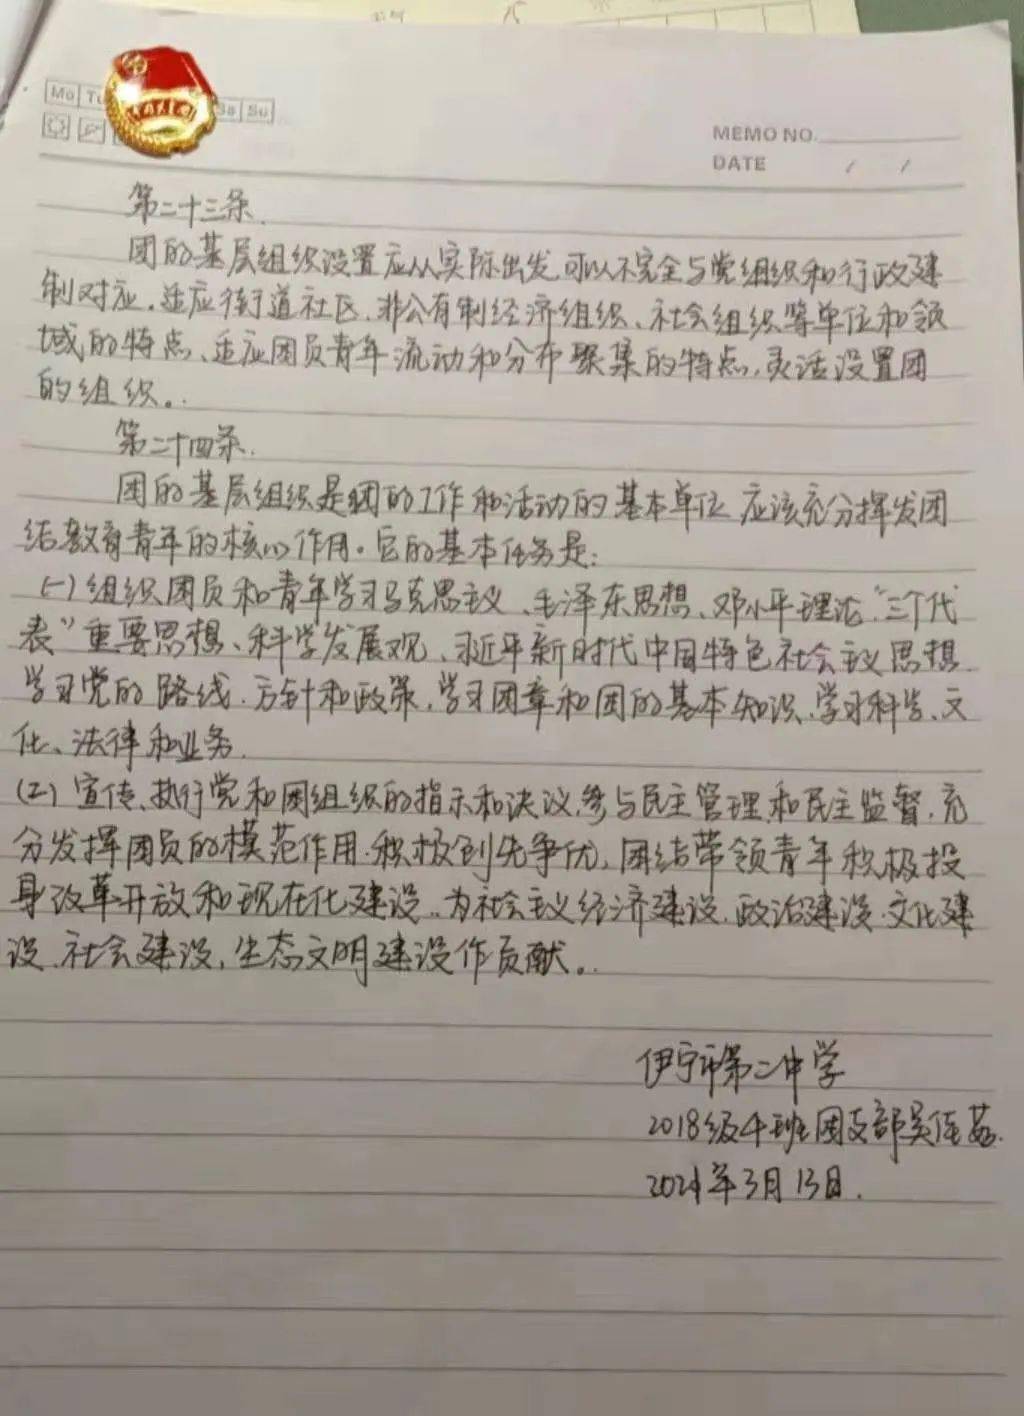 Mo Tu Sa Su
MEMO NO.
DATE / /
第二十三条
团的基层组织设置应从实际出发,可以不完全与党组织和行政建
制对应。适应街道社区、非公有制经济组织、社会组织等单位和领
域的特点、适应团员青年流动和分布聚集的特点,灵活设置团
的组织。
第二十四条
团的基层组织是团的工作和活动的基本单位,应该充分挥发团
结教育青年的核心作用。它的基本任务是:
(一)组织团员和青年学习马克思主义、毛泽东思想、邓小平理论、“三个代
表”重要思想、科学发展观、习近平新时代中国特色社会主义思想,
学习党的路线、方针和政策,学习团章和团的基本知识,学习科学、文
化、法律和业务.
(二)宣传、执行党和团组织的指示和决议,参与民主管理和民主监督,充
分发挥团员的模范作用,积极创先争优,团结带领青年积极投
身改革开放和现在化建设,为社会主义经济建设、政治建设、文化建
设、社会建设,生态文明建设作贡献。
伊宁市第二中学
2018级4班团支部吴佳
2021年3月13日.